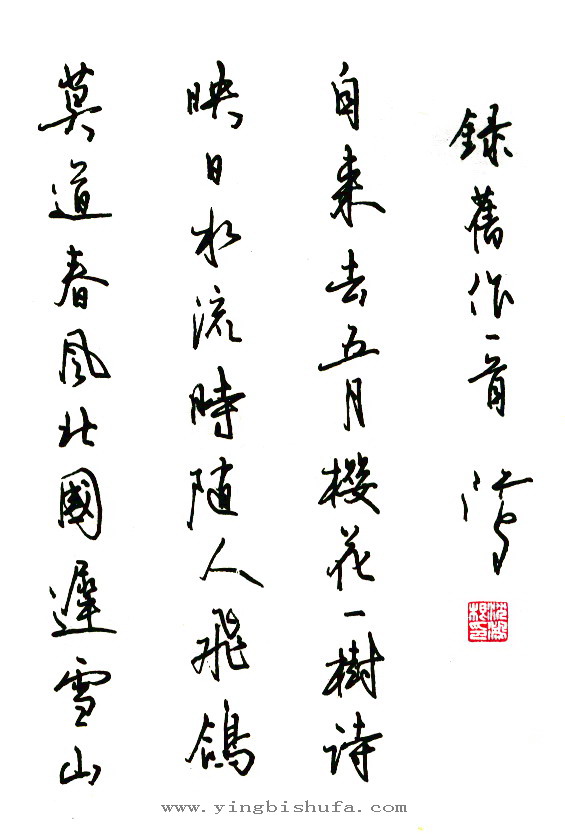 莫道春風北國遲雪山
映日水流時随人飛鴿
自来去五月櫻花一樹诗
録舊作一首 鸿
www.yingbishufa.com